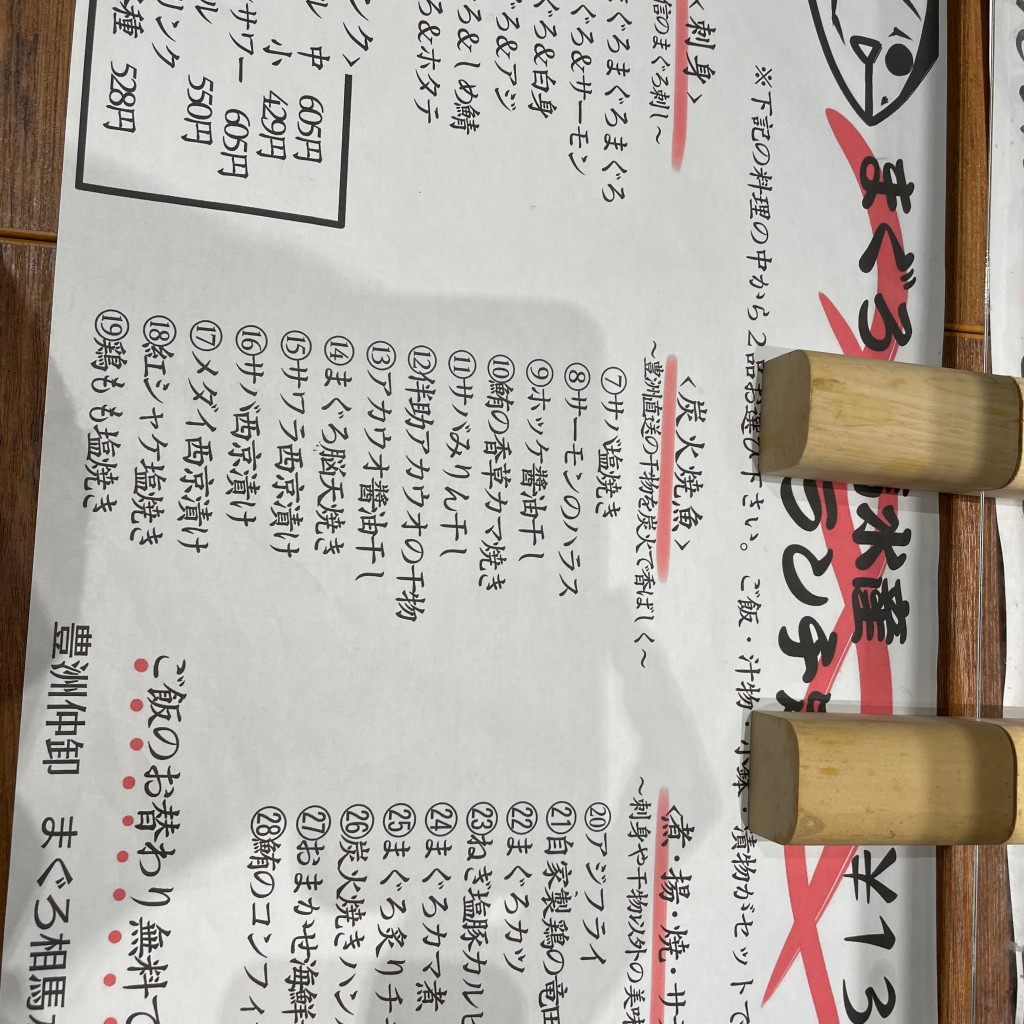 まぐろ 水産
ランチ ¥13
※下記の料理の中から2品お選び下さい。ご飯・汁物・小鉢・漬物がセットで
〈刺身〉
信のまぐろ刺し～
まぐろまぐろまぐろ
ぐろ&サーモン
ぐろ&白身
ぐろ&アジ
ろ&しめ鯖
ろ&ホタテ
ンク〉
ル 中 605円
小 429円
サワー 605円
ル 550円
リンク
種 528円
〈炭火焼魚〉
～豊洲直送の干物を炭火で香ばしく～
⑦サバ塩焼き
⑧サーモンのハラス
⑨ホッケ醤油干し
⑩鮪の香草カマ焼き
⑪サバみりん干し
⑫伴助アカウオの干物
⑬アカウオ醤油干し
⑭まぐろ脳天焼き
⑮サワラ西京漬け
⑯サバ西京漬け
⑰メダイ西京漬け
⑱紅シャケ塩焼き
⑲鶏もも塩焼き
〈煮・揚・焼・サラ
～刺身や干物以外の美味
⑳アジフライ
㉑自家製鶏の竜田
㉒まぐろカツ
㉓ねぎ塩豚カルビ
㉔まぐろカマ煮
㉕まぐろ炙りチ
㉖炭火焼きハン
㉗おまかせ海鮮
㉘鮪のコンフィ
ご飯のお替わり無料で
豊洲仲卸 まぐろ相馬